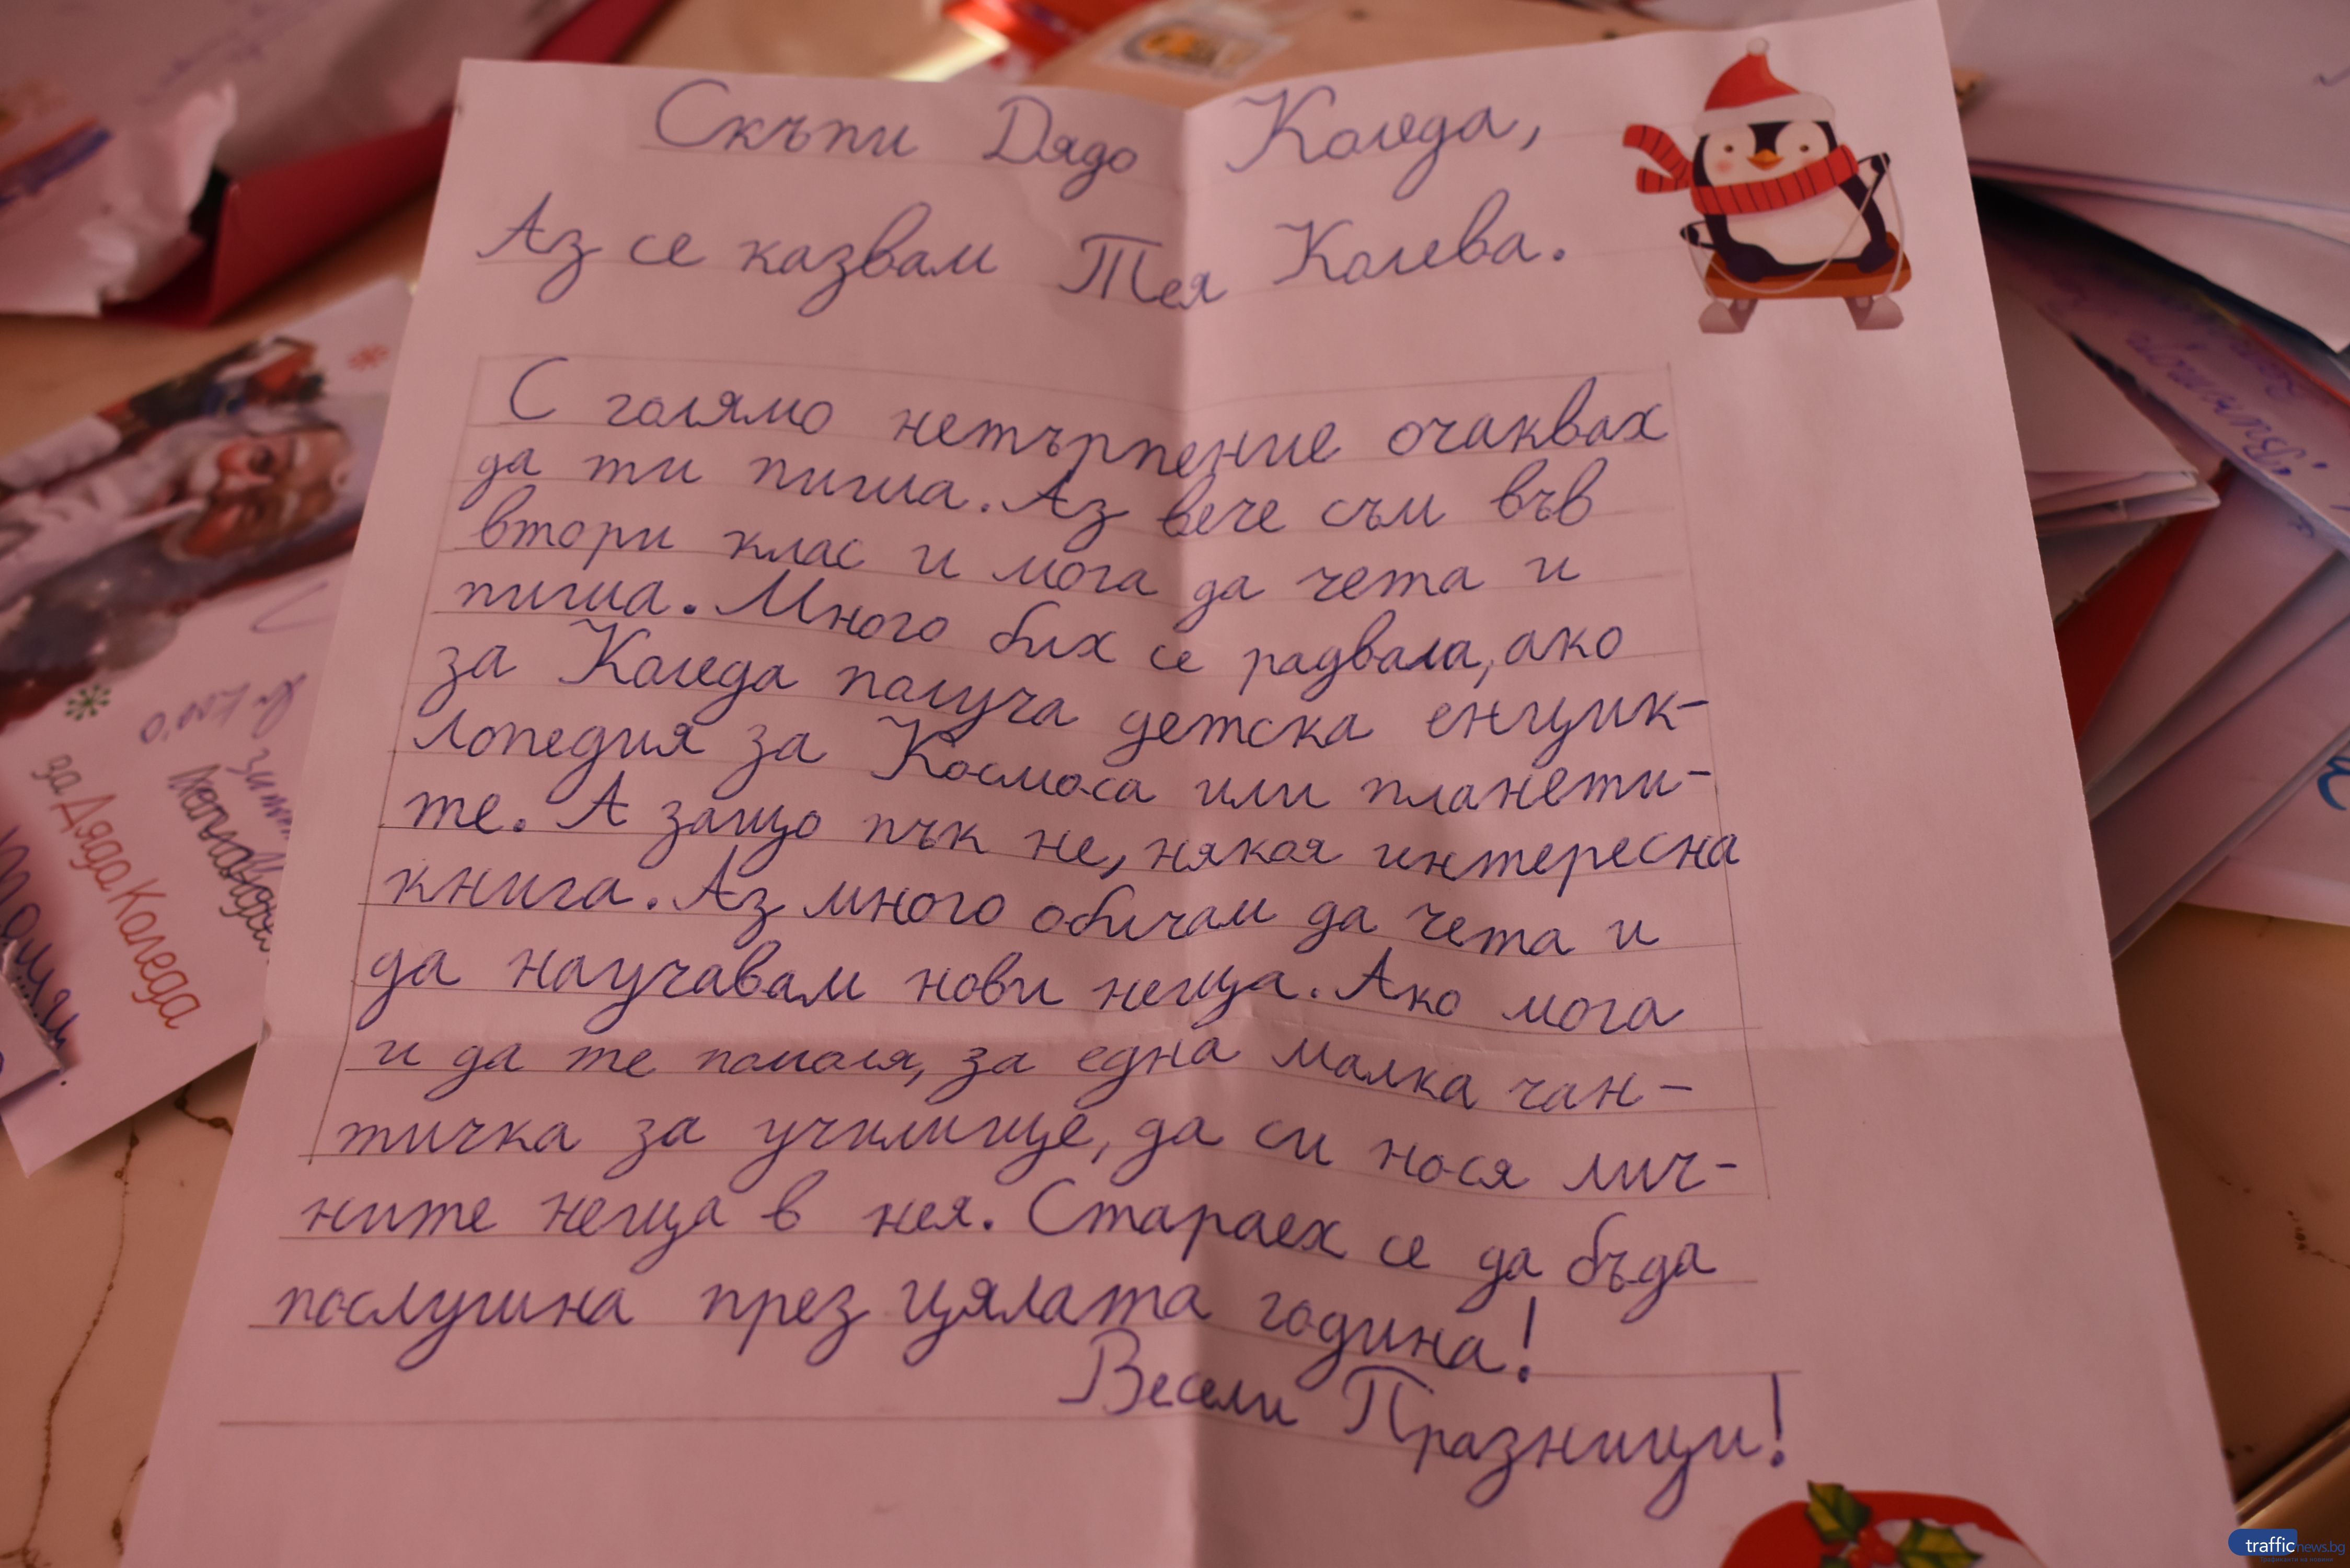 Скъпи Дядо Коледа,
Аз се казвам Тея Колева.
С голямо нетърпение очаквах
да ти пиша. Аз вече съм във
втори клас и мога да чета и
пиша. Много бих се радвала, ако
за Коледа получа детска енцик-
лопедия за Космоса или планети-
те. А защо пък не, някоя интересна
книга. Аз много обичам да чета и
да научавам нови неща. Ако мога
и да те помоля, за една малка чан-
тичка за училище, да си нося лич-
ните неща в нея. Стараех се да бъда
послушна през цялата година!
Весели Празници!
за Дядо Коледа
trafficnews.bg